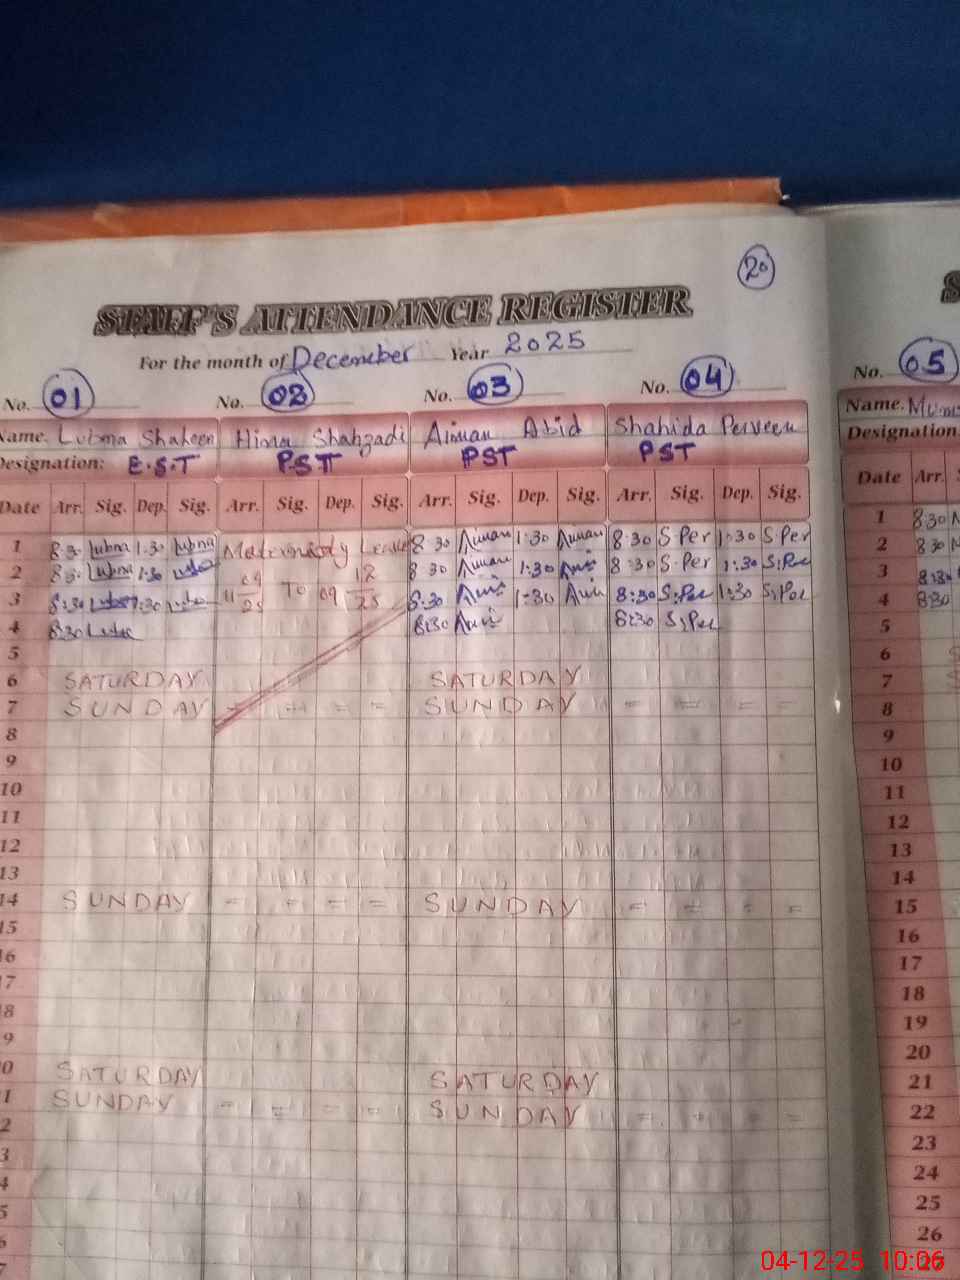 20
STAFF'S ATTENDANCE REGISTER
For the month of Decemeber Year 2025
No. 01 No. 02 No. 03 No. 04 No. 05
Name. Lubna Shaheen Hina Shahzadi Aiman Abid Shahida Perveen Name.
Designation: E.S.T PST PST PST Designation.
Date Arr. Sig. Dep. Sig. Arr. Sig. Dep. Sig. Arr. Sig. Dep. Sig. Arr. Sig. Dep. Sig. Date Arr.
1 8:30 Lubna 1:30 Lubna Leave 8:30 Aiman 1:30 Aiman 8:30 S Per 1:30 S Per 1 8:30
2 8:30 Lubna 1:30 8:30 Aiman 1:30 8:30 S.Per 1:30 2 8:30
3 8:30 1:30 To 8:30 1:30 8:30 1:30 3 8:30
4 8:30 8:30 8:30 4 8:30
5 5
6 SATURDAY SATURDAY 6
7 SUNDAY - - = = SUNDAY - = = = 7
8 8
9 9
10 10
11 11
12 12
13 13
14 SUNDAY = = = = SUNDAY = = = = 14
15 15
16 16
17 17
8 18
9 19
0 SATURDAY SATURDAY 20
1 SUNDAY = = = = SUNDAY = = = = 21
2 22
3 23
4 24
5 25
6 26
7 27
04-12-25 10:06